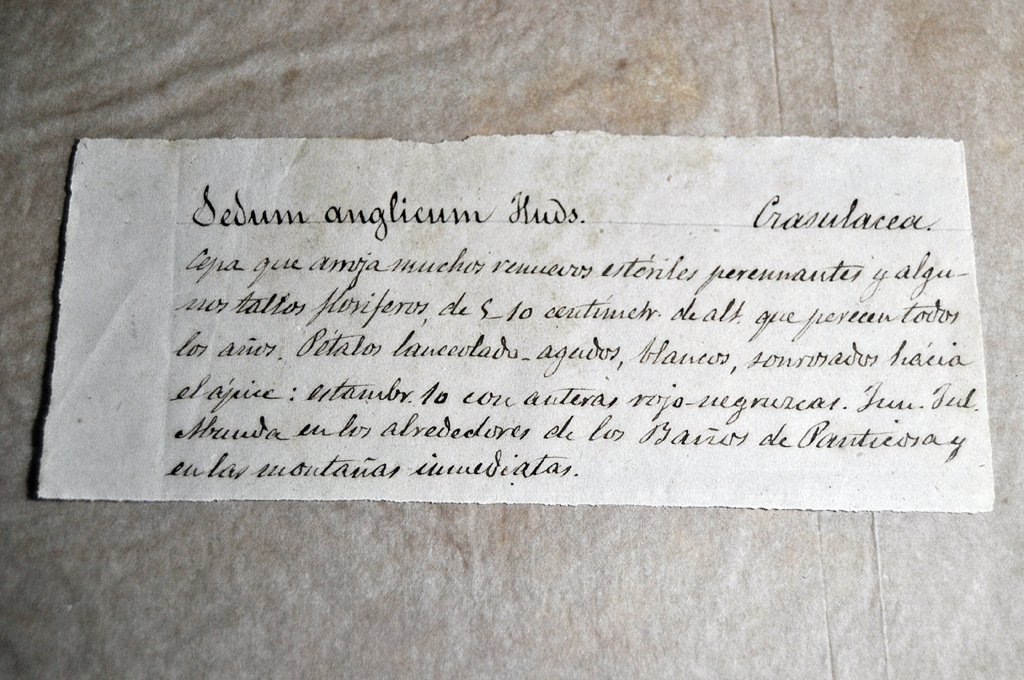 Sedum anglicum Huds. Crasulacea.
Cepa que arroja muchos renuevos estériles perennantes y algu-
nos tallos floriferos, de 5-10 centimetr. de alt. que perecen todos
los años. Pétalos lanceolado-agudos, blancos, sonrosados hácia
el ápice: estambr. 10 con anteras rojo-negruzcas. Jun. Jul.
Abunda en los alrededores de los Baños de Panticosa y
en las montañas inmediatas.